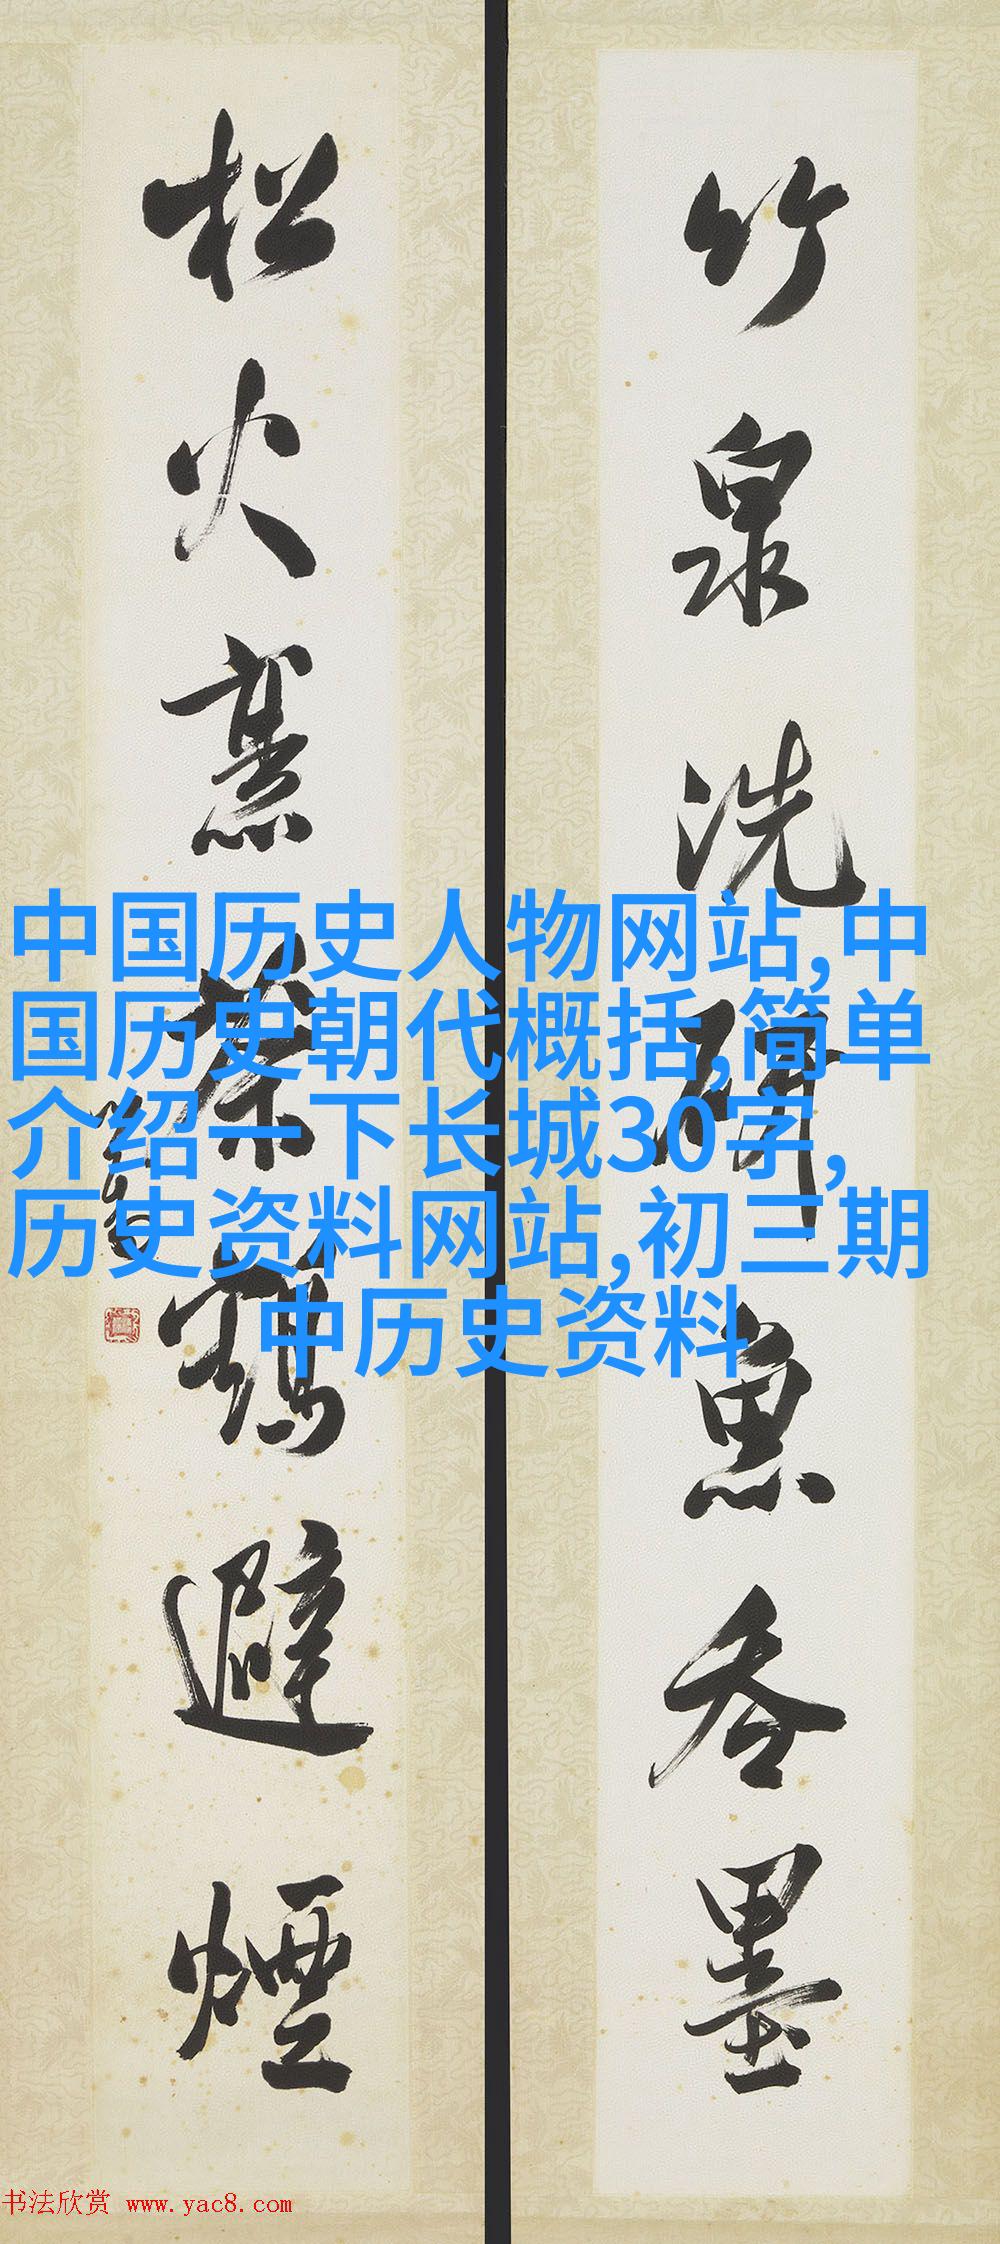 竹泉洗研魚吞墨
松火烹茶鶴避煙
中国历史人物网站,中
国历史朝代概括,简单
介绍一下长城30字,
历史资料网站,初三期
中历史资料
书法欣赏 www.yac8.com